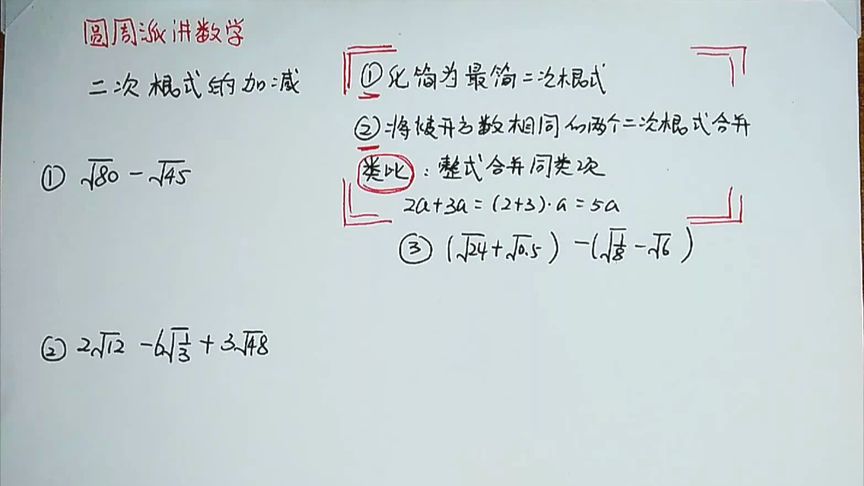 圆周派讲数学
二次根式的加减
①化简为最简二次根式
②:将被开方数相同的两个二次根式合并
类比:整式合并同类项
2a+3a=(2+3)·a=5a
① √80-√45
③ (√24+√0.5)-(√(1/8)-√6)
② 2√12-6√(1/3)+3√48